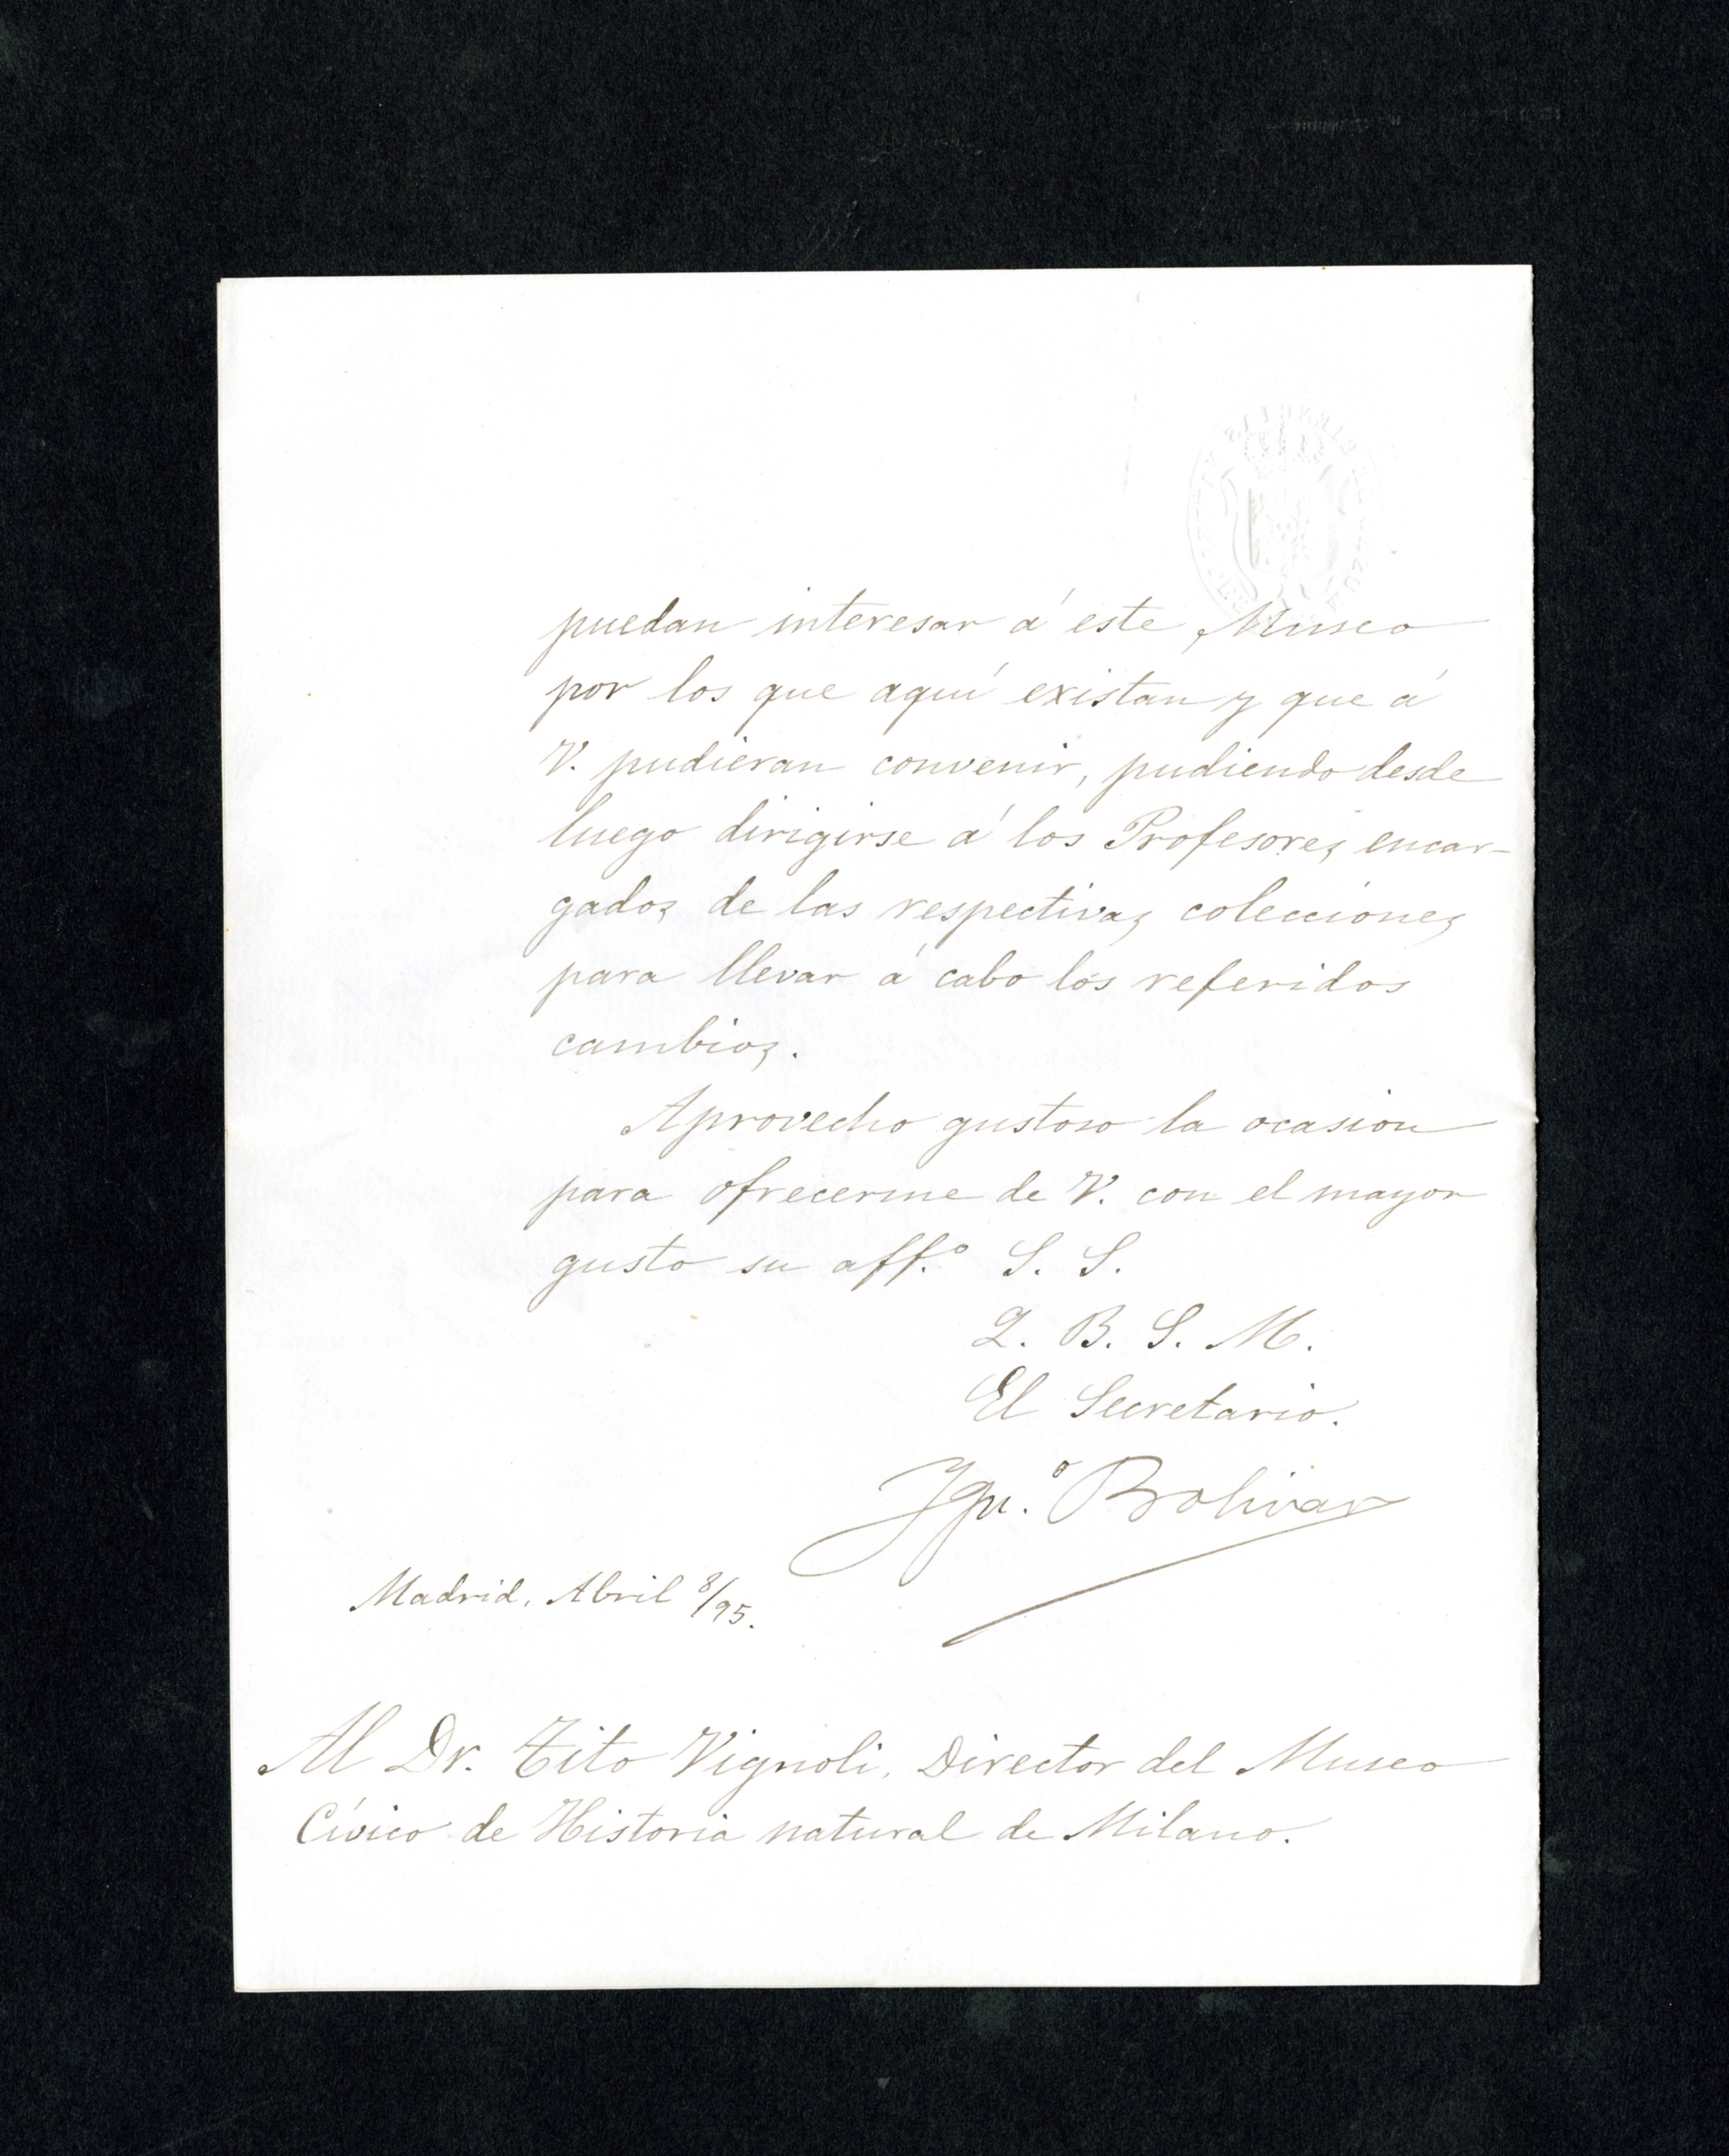 puedan interesar á este Museo
por los que aquí existan y que á
V. pudieran convenir, pudiendo desde
luego dirigirse á los Profesores encar-
gados de las respectivas colecciones
para llevar á cabo los referidos
cambios.
Aprovecho gustoso la ocasion
para ofrecerme de V. con el mayor
gusto su aff.º S. S.
Q. B. S. M.
El Secretario.
Ygn.º Bolivar
Madrid, Abril 8/95.
Al Dr. Tito Vignoli, Director del Museo
Cívico de Historia natural de Milano.